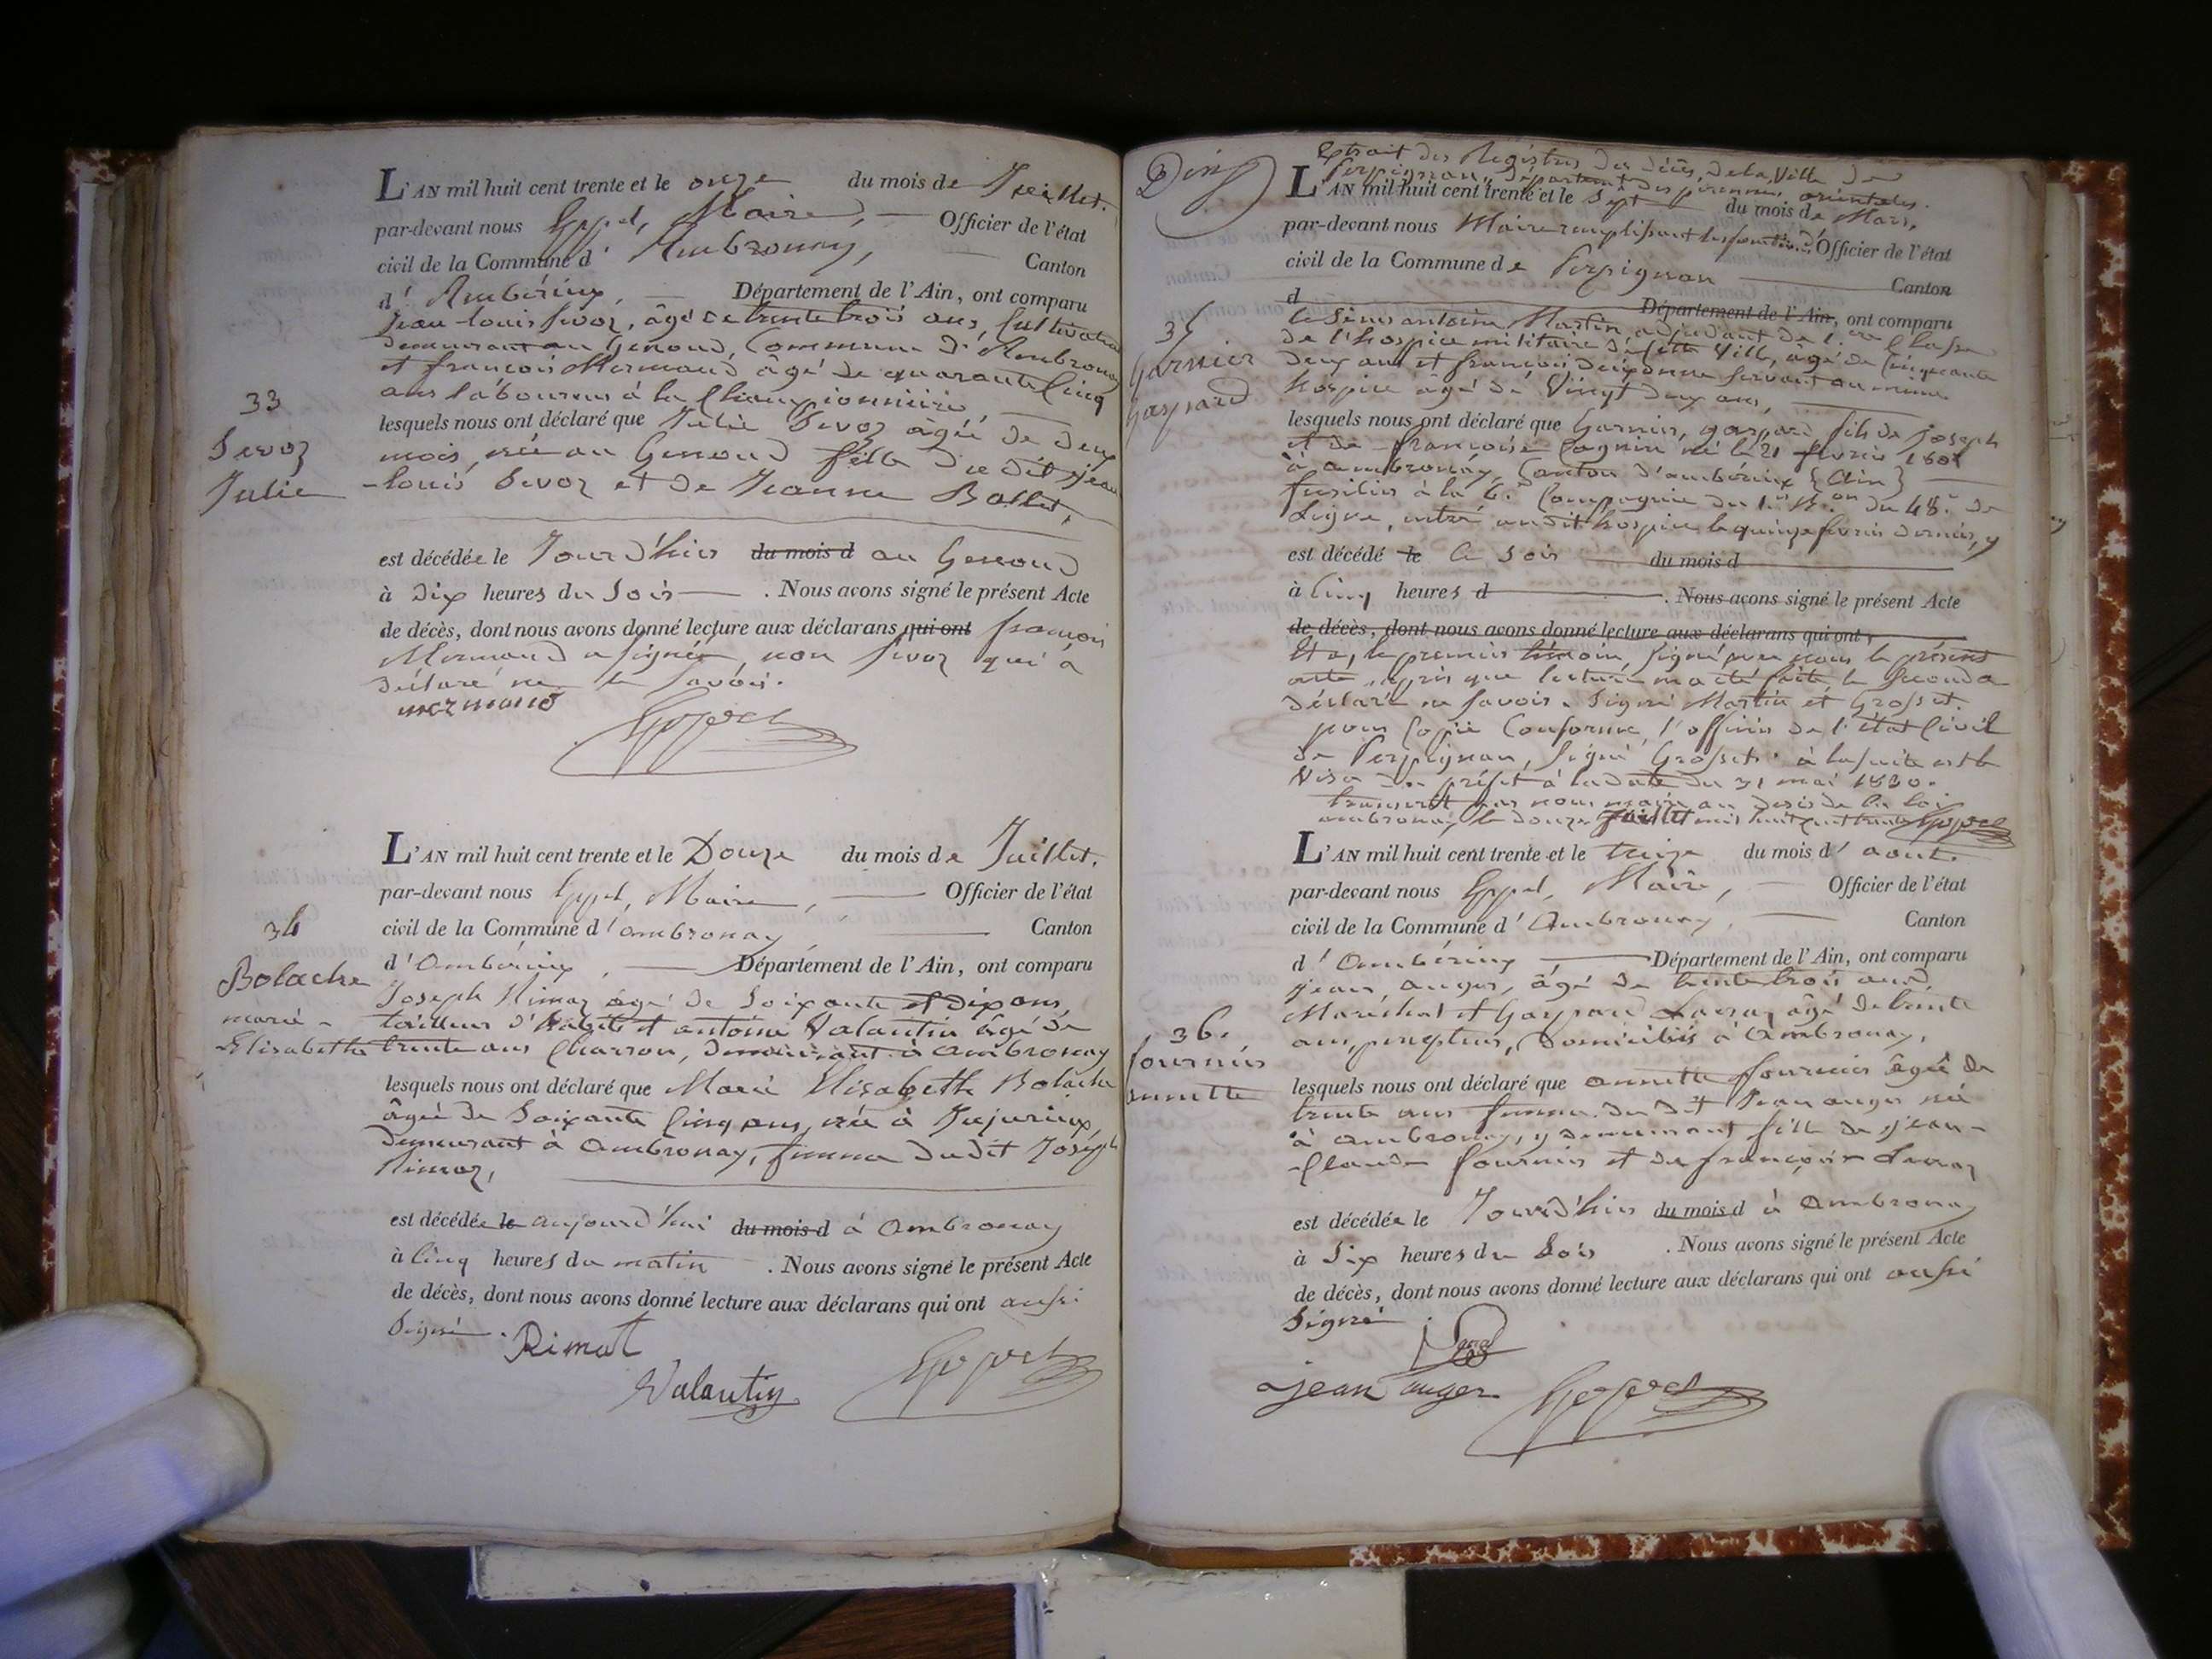 L'AN mil huit cent trente et le onze du mois de Juillet.
par-devant nous Goppel, Maire, Officier de l'état
civil de la Commune d' Ambronay, Canton
d' Ambérieux, Département de l'Ain, ont comparu
Jean-louis Sevoz, âgé de trente trois ans, Cultivateur
demeurant au Genoud, Commune d'Ambronay
et françois Mermand âgé de quarante Cinq
ans laboureur à la Championnière,
33
Sevoz
Julie
lesquels nous ont déclaré que Julie Sevoz âgée de deux
mois, née au Genoud fille du dit Jean
-louis Sevoz et de Jeanne Bollet,
est décédée le Jour d'hier du mois d au Genoud
à dix heures du Soir . Nous avons signé le présent Acte
de décès, dont nous avons donné lecture aux déclarans qui ont françois
Mermand a signé, non Sevoz qui a
déclaré ne le savoir.
mermand
L'AN mil huit cent trente et le Douze du mois de Juillet.
par-devant nous Goppel, Maire, Officier de l'état
civil de la Commune d'ambronay, Canton
d'Ambérieux, Département de l'Ain, ont comparu
34
Bolache
marie-
Elisabethe
Joseph Rimoz âgé de Soixante et dix ans,
tailleur d'habits et antoine Valantin âgé de
trente ans Charron, demeurant à ambronay
lesquels nous ont déclaré que Marie Elisabeth Bolache
âgée de Soixante Cinq ans, née à Jujurieux,
demeurant à ambronay, femme dudit Joseph
Rimoz,
est décédée le aujourd'hui du mois d à ambronay
à Cinq heures du matin . Nous avons signé le présent Acte
de décès, dont nous avons donné lecture aux déclarans qui ont aussi
Signé.
Rimot
Valantin
Extrait des Registres des décès, de la Ville de
Perpignan, département des pirennes orientales.
L'AN mil huit cent trente et le Sept du mois de Mars,
par-devant nous Maire remplissant les fonctions d'Officier de l'état
civil de la Commune de Perpignan Canton
d Département de l'Ain, ont comparu
35
Garnier
Gaspard
le Sieur antoine Martin adjudant de 1.ere Classe
de l'hospice militaire de cette Ville, âgé de Cinquante
deux ans et françois servant au même
hospice âgé de Vingt deux ans,
lesquels nous ont déclaré que Garnier, gaspard fils de Joseph
et de françoise né le 21 fevrier
à ambronay, Canton d'ambérieux {Ain}
fusilier à la 6.e Compagnie du 1.er B.on du 48.e de
Ligne, entré au dit hospice le quinze fevrier dernier, y
est décédé le Ce Soir du mois d
à Cinq heures d . Nous avons signé le présent Acte
de décès, dont nous avons donné lecture aux déclarans qui ont
Et a, le premier témoin, signé avec nous le présent
acte, après que lecture en a été faite le second a
déclaré ne savoir. Signé Martin et Grosset.
pour Copie Conforme, l'officier de l'état Civil
de Perpignan, Signé Grosset. à la suite est le
Visa du préfet à la date du 31 mai 1830.
transcrit par nous maire au desir de la loi
ambronay le douze Juillet mil huit cent trente
L'AN mil huit cent trente et le treize du mois d'aout.
par-devant nous Goppel, Maire, Officier de l'état
civil de la Commune d'Ambronay, Canton
d'Ambérieux Département de l'Ain, ont comparu
jean auger, âgé de trente trois ans,
Maréchal et Gaspard Lavraz âgé de trente
ans, percepteur, Domiciliés à Ambronay,
36.
fournier
annette
lesquels nous ont déclaré que annette fournier âgée de
trente ans femme du dit Jean auger née
à ambronay, y demeurant fille de jean-
-Claude fournier et de françoise
est décédée le Jour d'hier du mois d à ambronay
à Six heures du Soir . Nous avons signé le présent Acte
de décès, dont nous avons donné lecture aux déclarans qui ont aussi
Signé.
jean auger